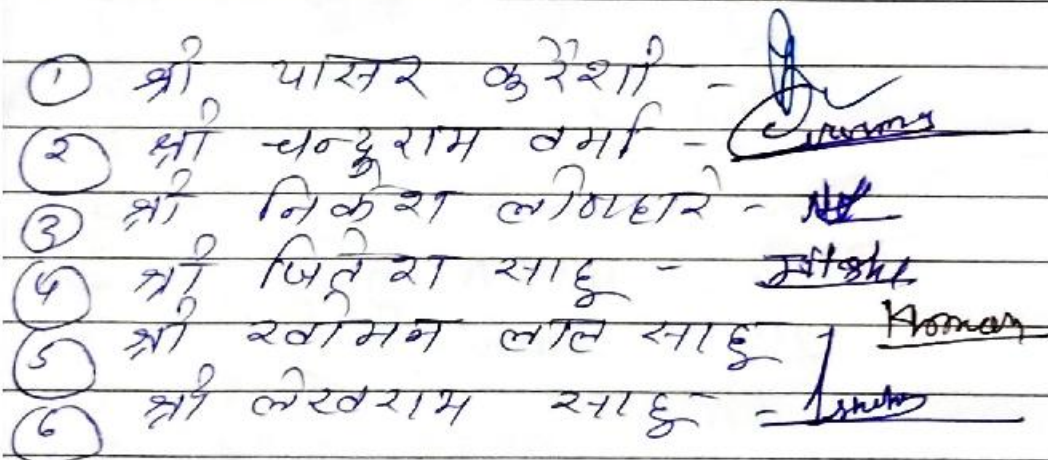 ① श्री यासर कुरैशी -
② श्री चन्दुराम वर्मा -
③ श्री निकेश लोणहारे -
④ श्री जितेश साहू -
⑤ श्री खोमन लाल साहू Homan
⑥ श्री लेखराम साहू -